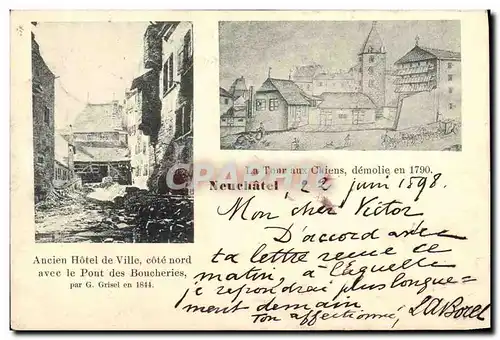 La Tour aux Chiens, démolie en 1790.
Neuchâtel, 22 juin 1898.
Mon cher Victor
D'accord avec
ta lettre reçue ce
matin, à laquelle
je repondrai plus longue-
ment demain
Ton affectionné, LABorel
Ancien Hôtel de Ville, côté nord
avec le Pont des Boucheries,
par G. Grisel en 1844.
CPA